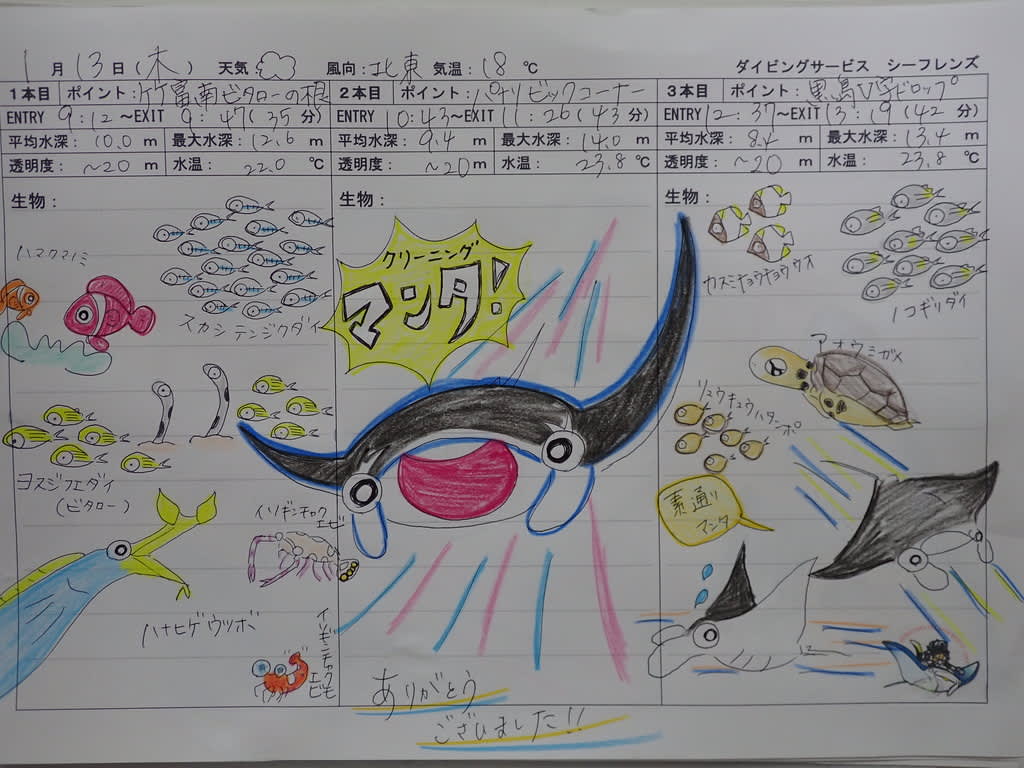 1月13日(木) 天気 風向:北東 気温:18℃ ダイビングサービス シーフレンズ
1本目 ポイント:竹富南ビタローの根
ENTRY 9:12~EXIT 9:47(35分)
平均水深:10.0m 最大水深:12.6m
透明度:~20m 水温:22.0℃
生物:
ハマクマノミ
スカシテンジクダイ
ヨスジフエダイ
(ビタロー)
イソギンチャク
エビ
ハナヒゲウツボ
イソギンチャク
エビモ
2本目 ポイント:パナリビックコーナー
ENTRY 10:43~EXIT 11:26(43分)
平均水深:9.4m 最大水深:14.0m
透明度:~20m 水温:23.8℃
生物:
クリーニング
マンタ!
ありがとう
ございました!!
3本目 ポイント:黒島V字ドロップ
ENTRY 12:37~EXIT 13:19(42分)
平均水深:8.4m 最大水深:13.4m
透明度:~20m 水温:23.8℃
生物:
カスミチョウチョウウオ
ノコギリダイ
アオウミガメ
リュウキュウハタンポ
素通り
マンタ